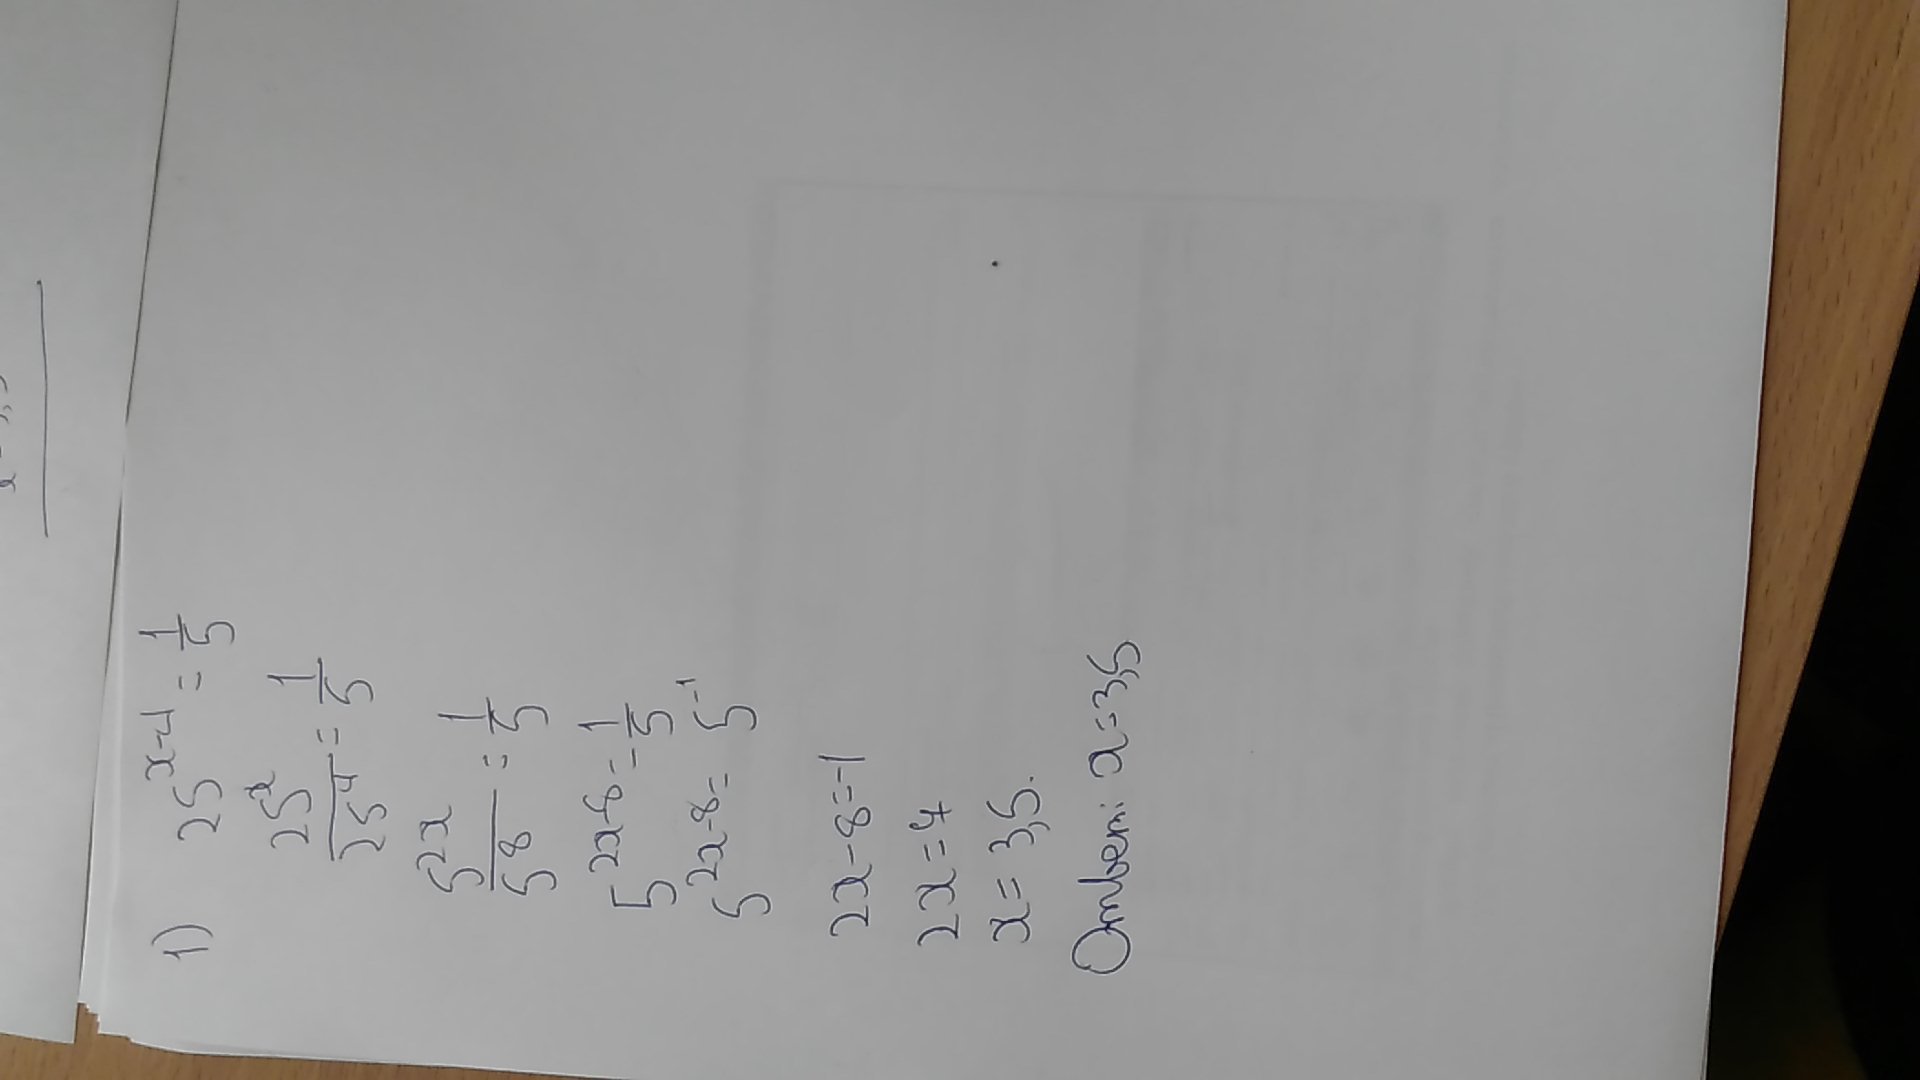 1) 25^{x-4} = \frac{1}{5}
\frac{25^x}{25^4} = \frac{1}{5}
\frac{5^{2x}}{5^8} = \frac{1}{5}
5^{2x-8} = \frac{1}{5}
5^{2x-8} = 5^{-1}
2x-8=-1
2x=7
x=3,5.
Ответ: x=3,5